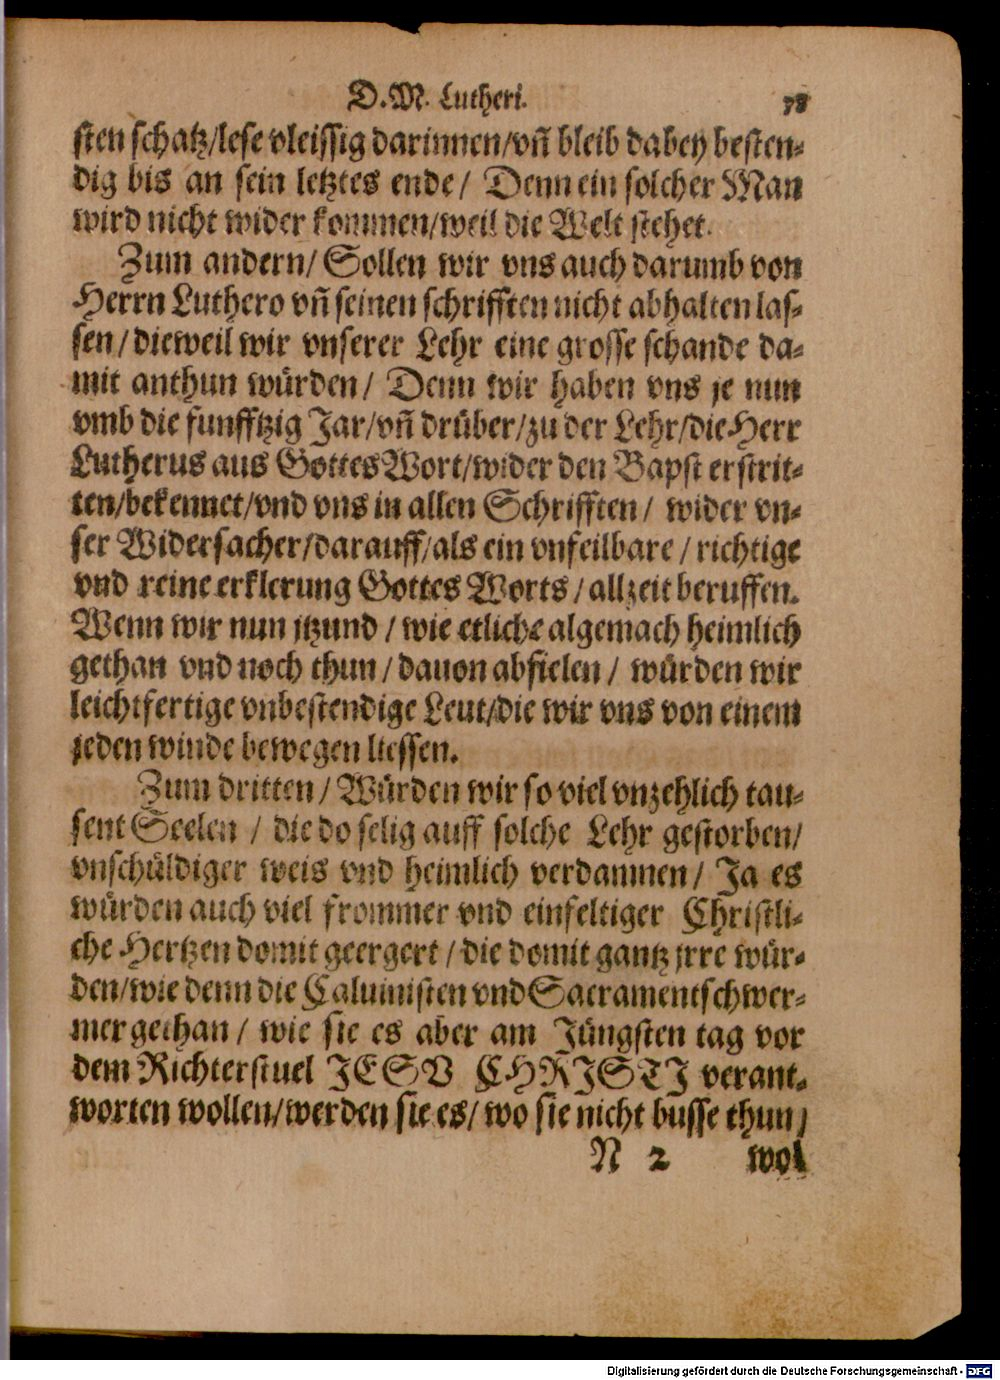 D. M. Lutheri. 78
sten schatz/lese vleissig darinnen/vn̄ bleib dabey besten-
dig bis an sein letztes ende/ Denn ein solcher Man
wird nicht wider kommen/weil die Welt stehet.
Zum andern/ Sollen wir vns auch darumb von
Herrn Luthero vn̄ seinen schrifften nicht abhalten las-
sen/dieweil wir vnserer Lehr eine grosse schande da-
mit anthun würden/ Denn wir haben vns je nun
vmb die funfftzig Jar/vn̄ drüber/zu der Lehr/die Herr
Lutherus aus Gottes Wort/wider den Bapst erstrit-
ten/bekennet/vnd vns in allen Schrifften/ wider vn-
ser Widersacher/darauff/als ein vnfeilbare/richtige
vnd reine erklerung Gottes Worts/allzeit beruffen.
Wenn wir nun jtzund/wie etliche algemach heimlich
gethan vnd noch thun/dauon abfielen/ würden wir
leichtfertige vnbestendige Leut/die wir vns von einem
jeden winde bewegen liessen.
Zum dritten/Würden wir so viel vnzehlich tau-
sent Seelen / die do selig auff solche Lehr gestorben/
vnschüldiger weis vnd heimlich verdammen/ Ja es
würden auch viel frommer vnd einfeltiger Christli-
che Hertzen domit geergert/die domit gantz jrre wür-
den/wie denn die Caluinisten vnd Sacramentschwer-
mer gethan/ wie sie es aber am Jüngsten tag vor
dem Richterstuel JESV CHRISTI verant-
worten wollen/werden sie es/wo sie nicht busse thun/
N 2 wol
Digitalisierung gefördert durch die Deutsche Forschungsgemeinschaft - DFG